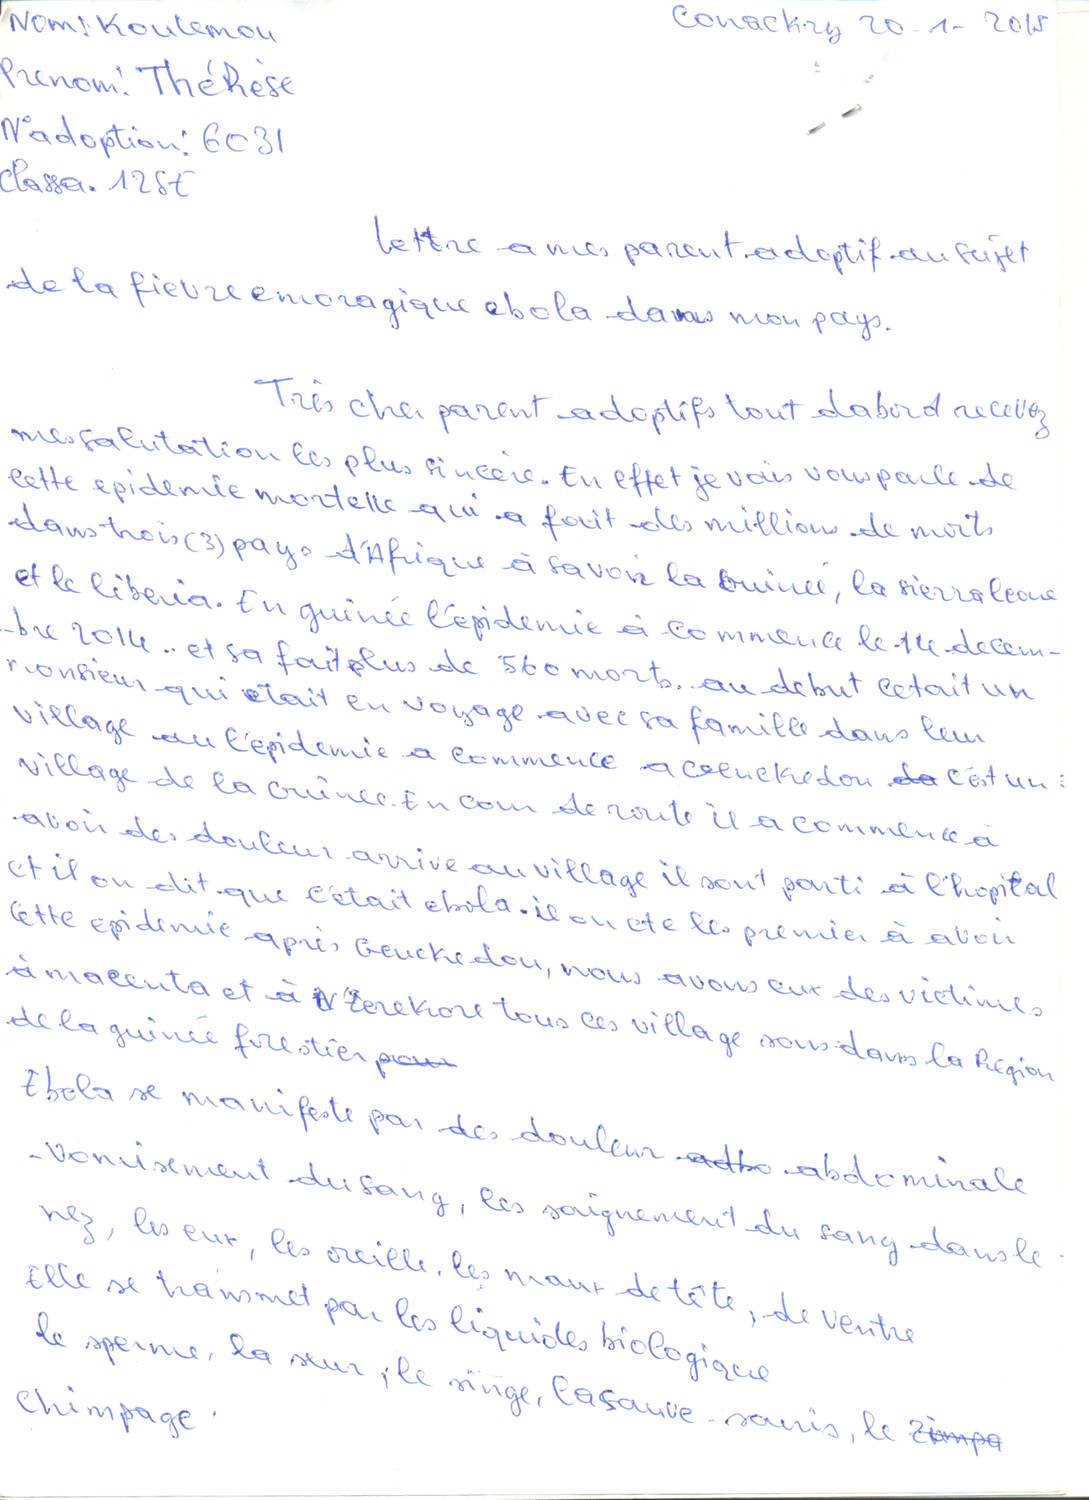 Nom: Koulemou
Conackry 20-1-2015
Prenom: Thérèse
N°adoption: 6031
Classe. 12SE
lettre a mes parent adoptif au sujet
de la fievre emoragique ebola dans mon pays.
Très cher parent adoptifs tout dabord recevez
mes salutation les plus sincère. En effet je vais vous parle de
cette epidemie mortelle qui a fait des millions de morts
dans trois (3) pays d'Afrique à savoir la Guinée, la sierra leone
et le liberia. En guinée l'epidemie à commence le 14 decem-
-bre 2014.. et sa fait plus de 560 morts. au debut cetait un
monsieur qui etait en voyage avec sa famille dans leur
village au l'epidemie a commence a Gueuckedou da c'est un
village de la Guinee. En cour de route il a commence à
avoir des douleur arrive au village il sont parti à l'hopital
et il on dit que c'était ebola. il on ete les premier à avoir
cette epidemie après Geuckedou, nous avons eux des victimes
à macenta et à N'Zerekore tous ces village sous dans la Région
de la guinée forestier pour
Ebola se manifeste par des douleur adbo abdominale
-vomisement du sang, les saignement du sang dans le
nez, les eux, les oreille. les maux de tête, de ventre
Elle se transmet par les liquides biologique
le sperme, la seur, le singe, la sauve-souris, le Zimpa
Chimpage.